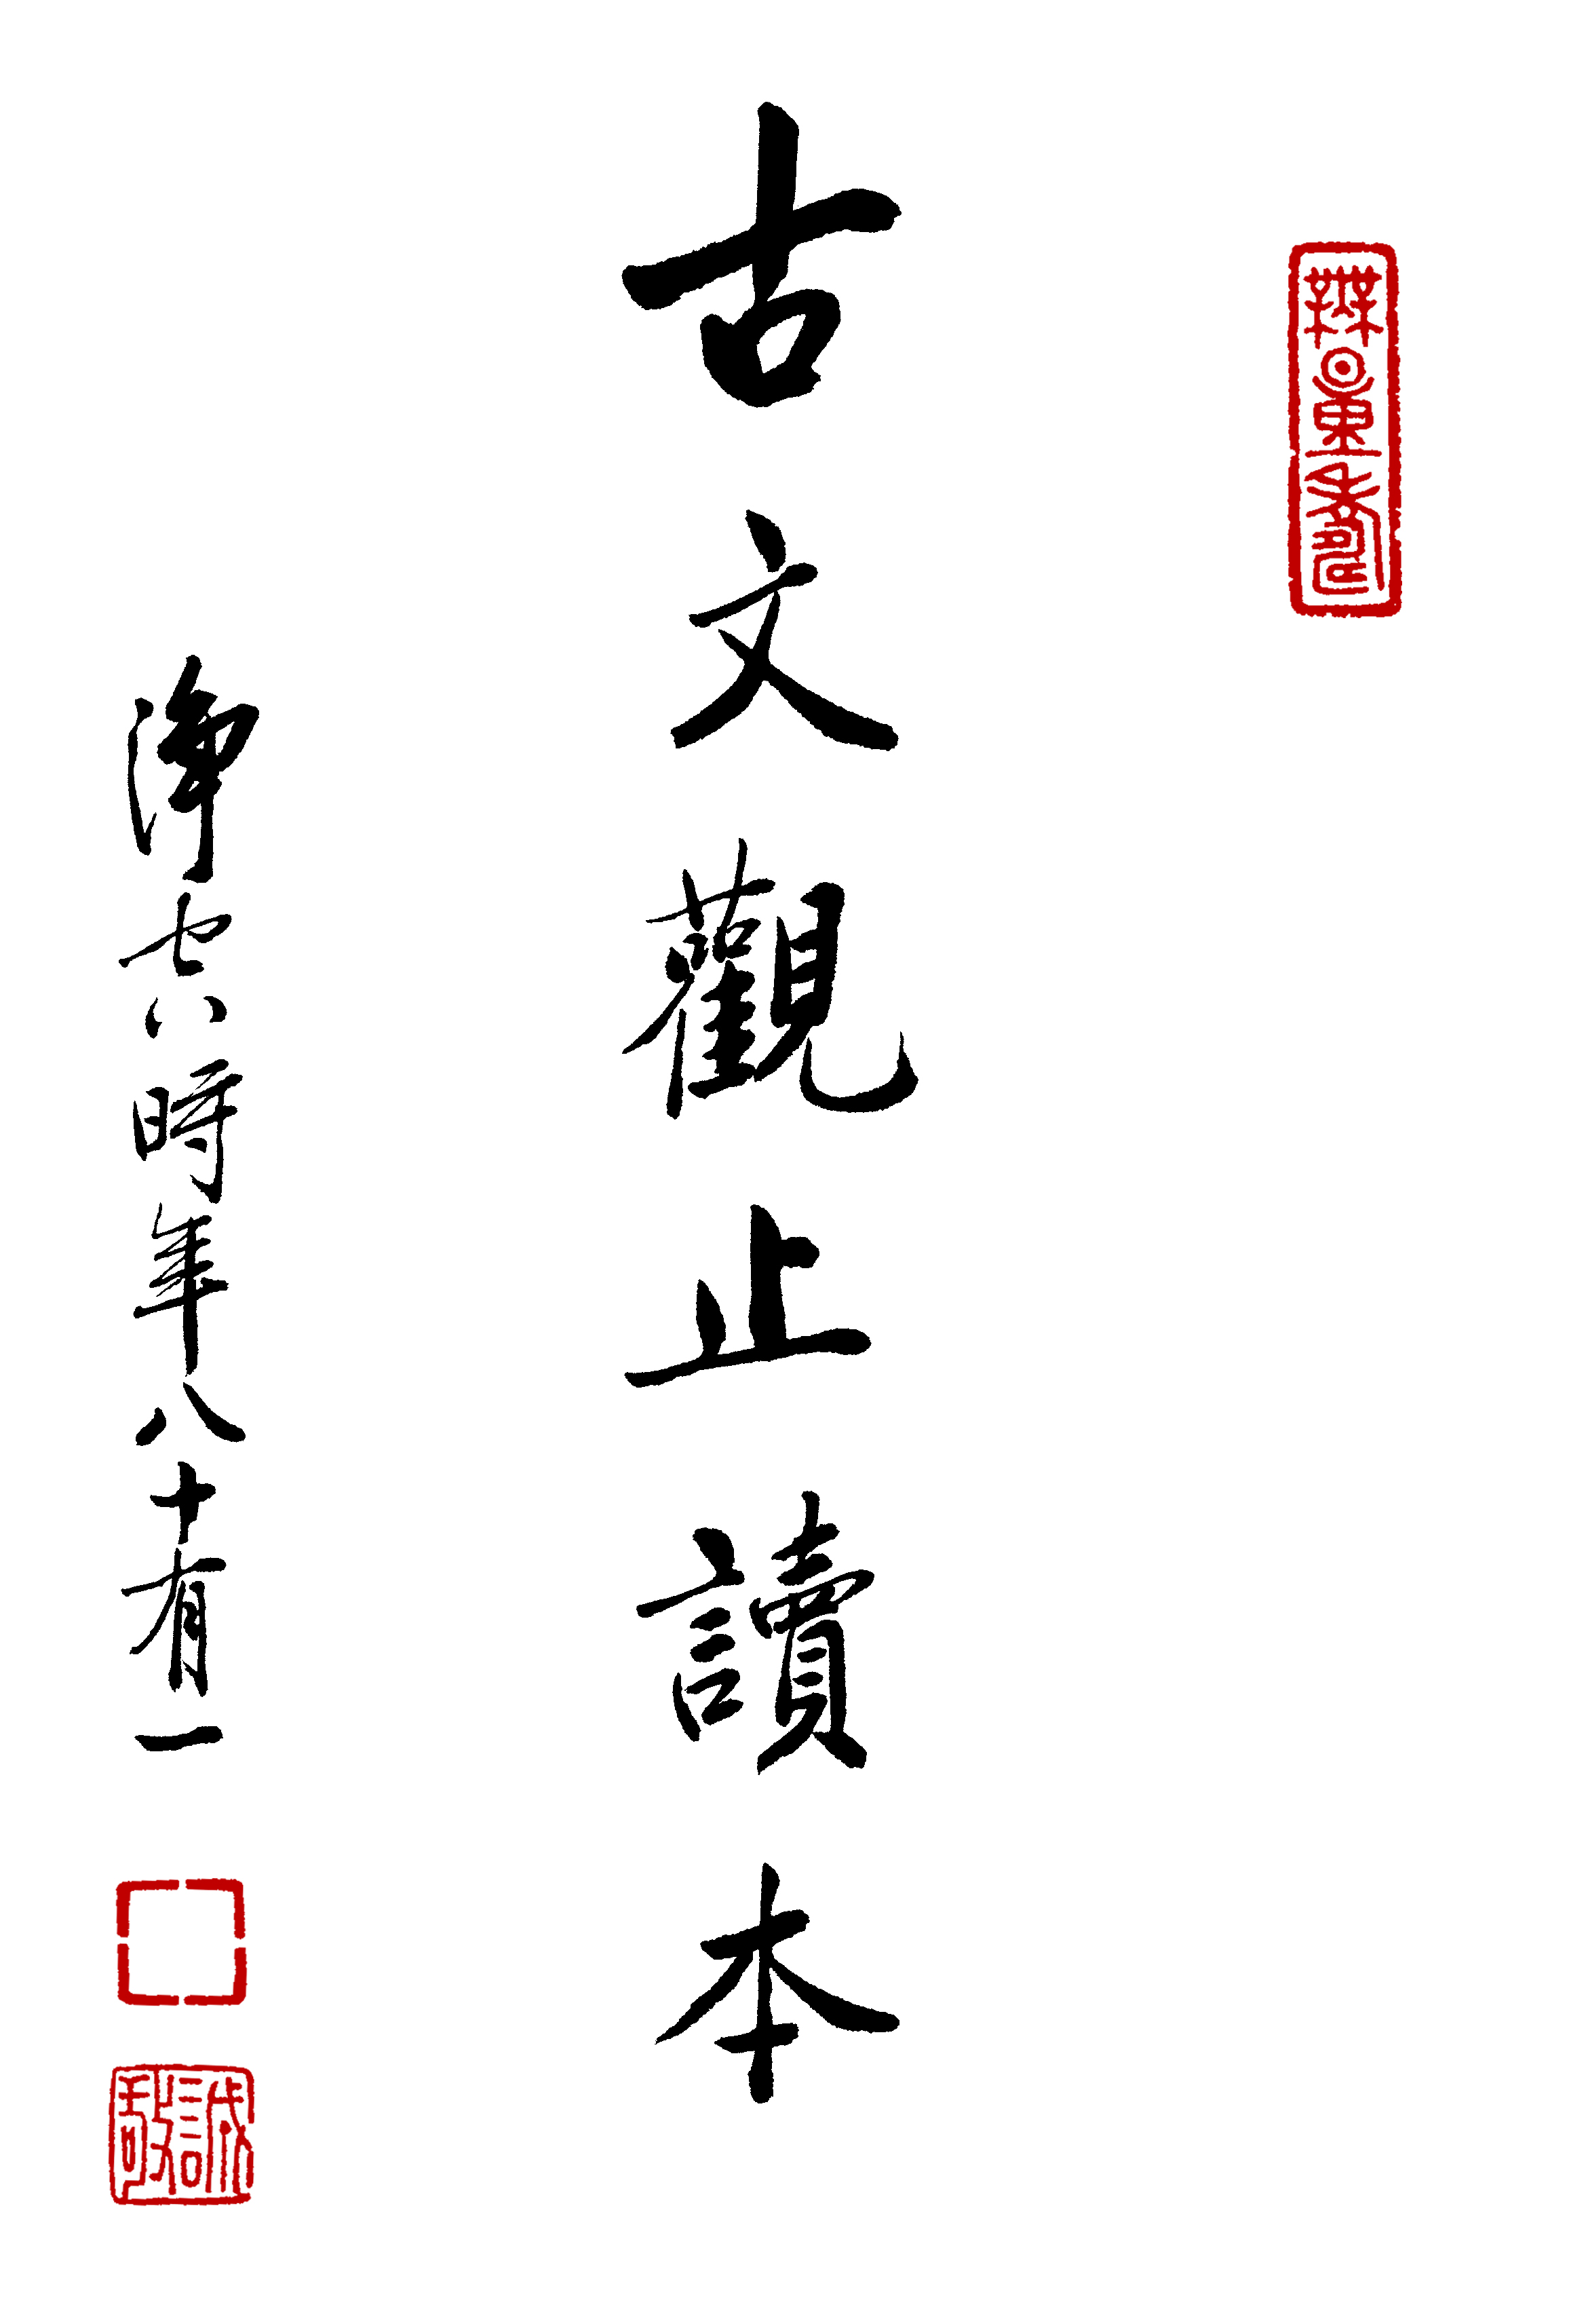 無量壽
古文觀止讀本
淨空時年八十有一
誠敬